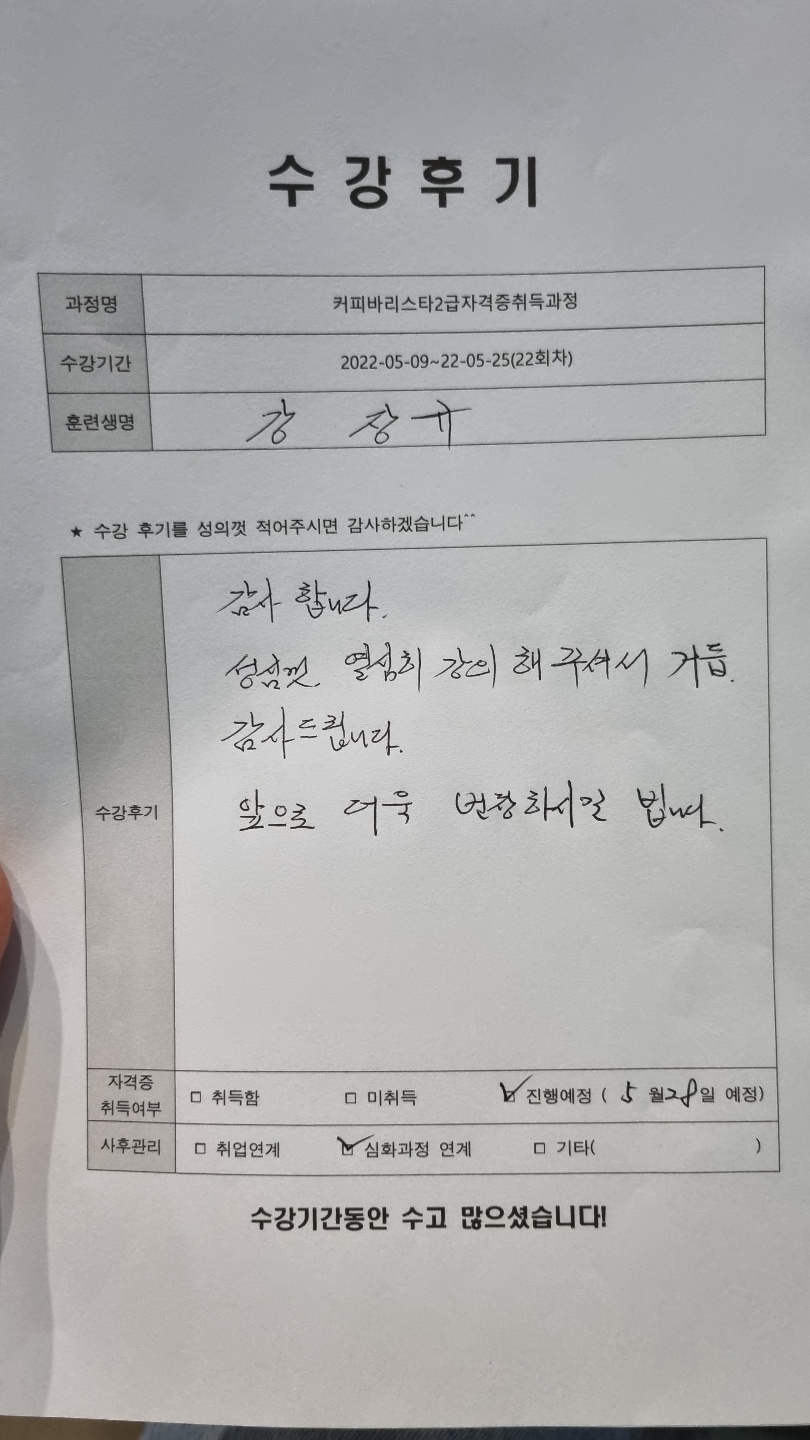 수 강 후 기
과정명 커피바리스타2급자격증취득과정
수강기간 2022-05-09~22-05-25(22회차)
훈련생명 강 장규
★ 수강 후기를 성의껏 적어주시면 감사하겠습니다^^
감사 합니다.
성심껏. 열심히 강의 해 주셔서 거듭.
감사드립니다.
수강후기
앞으로 더욱 번창하시길 빕니다.
자격증
취득여부 □ 취득함 □ 미취득 ☑ 진행예정 ( 5 월28일 예정)
사후관리 □ 취업연계 ☑ 심화과정 연계 □ 기타( )
수강기간동안 수고 많으셨습니다!